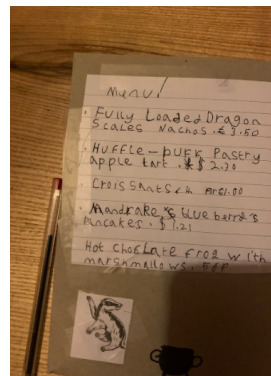 Menu!
• Fully Loaded Dragon
Scales Nachos . £ 3.50
• HUFFLE-PUFF Pastry
apple tart . $ 2.20
• Croissants
Mandrake's blueberry
Pancakes . $ 1.21
Hot Choclate Frog with
marshmallows .